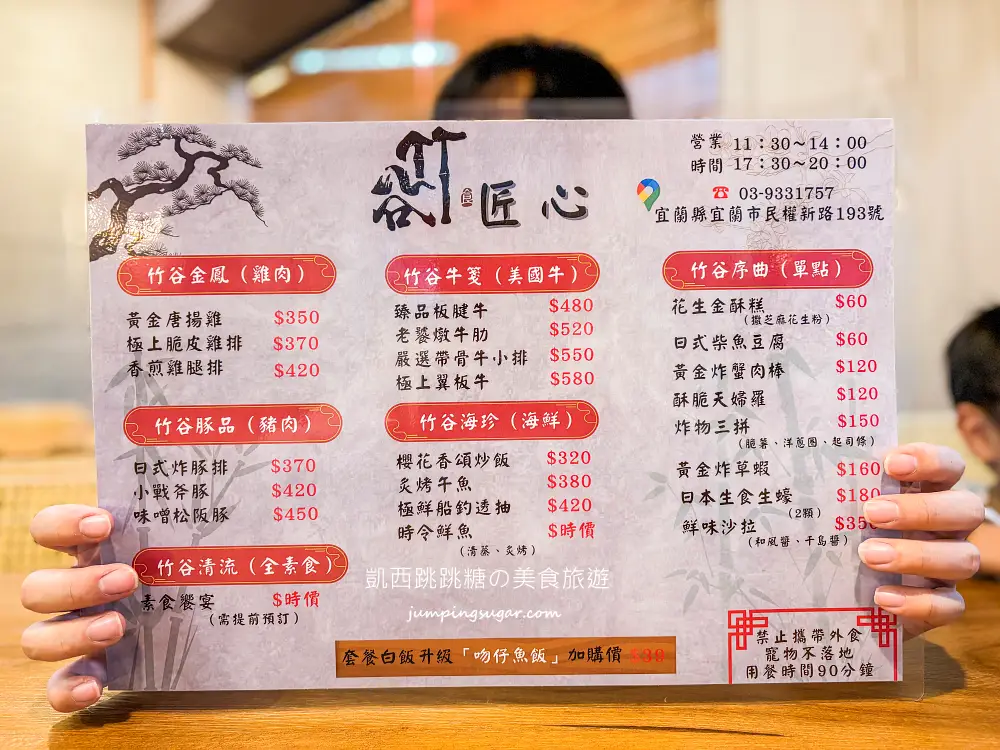 竹谷食匠心
營業 11:30~14:00
時間 17:30~20:00
☎ 03-9331757
宜蘭縣宜蘭市民權新路193號
竹谷金鳳（雞肉）
黃金唐揚雞 $350
極上脆皮雞排 $370
香煎雞腿排 $420
竹谷豚品（豬肉）
日式炸豚排 $370
小戰斧豚 $420
味噌松阪豚 $450
竹谷清流（全素食）
素食饗宴 $時價
（需提前預訂）
竹谷牛箋（美國牛）
臻品板腱牛 $480
老饕燉牛肋 $520
嚴選帶骨牛小排 $550
極上翼板牛 $580
竹谷海珍（海鮮）
櫻花香頌炒飯 $320
炙烤午魚 $380
極鮮船釣透抽 $420
時令鮮魚 $時價
（清蒸、炙烤）
竹谷序曲（單點）
花生金酥糕 $60
（撒芝麻花生粉）
日式柴魚豆腐 $60
黃金炸蟹肉棒 $120
酥脆天婦羅 $120
炸物三拼 $150
（脆薯、洋蔥圈、起司條）
黃金炸草蝦 $160
日本生食生蠔 $180
（2顆）
鮮味沙拉 $350
（和風醬、千島醬）
凱西跳跳糖の美食旅遊
jumpingsugar.com
套餐白飯升級「吻仔魚飯」加購價 $39
禁止攜帶外食
寵物不落地
用餐時間90分鐘